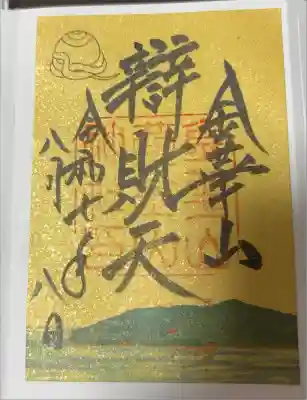 金華山
辯財天
令和七年
八月八日